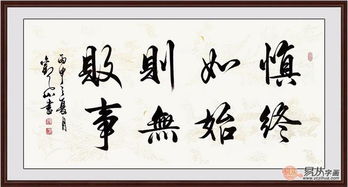 慎終
如始
則無
敗事
丙申之夏月
易从字画
www.yizizihua.com